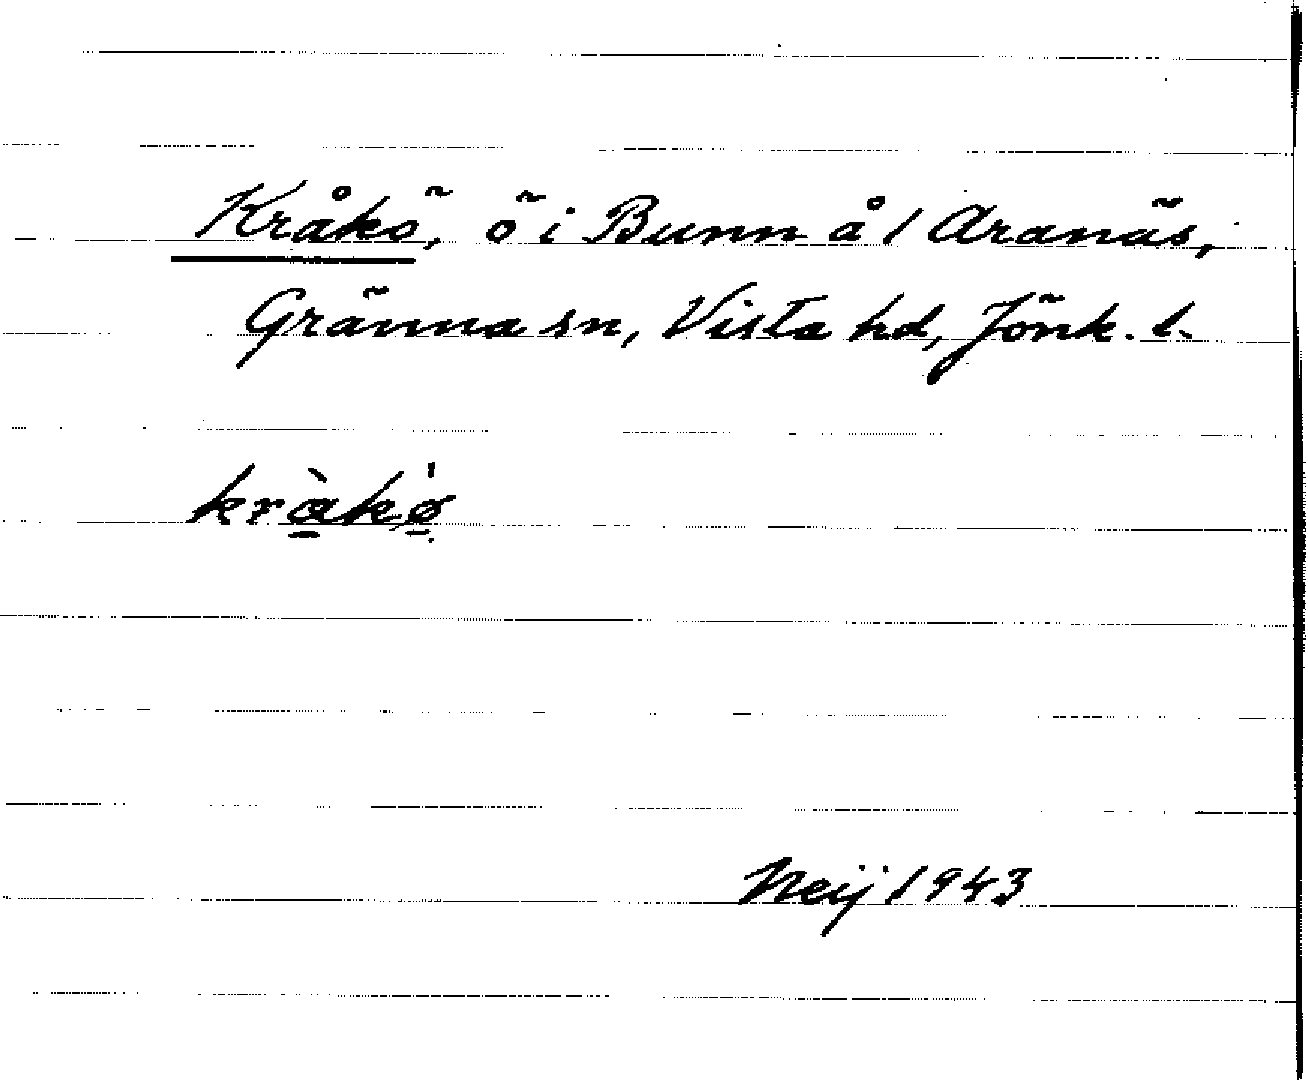 Kråkö, ö i Bunn å / Aranäs,
Gränna sn, Vista hd, Jönk. l.
kràkø̀
Neij 1943